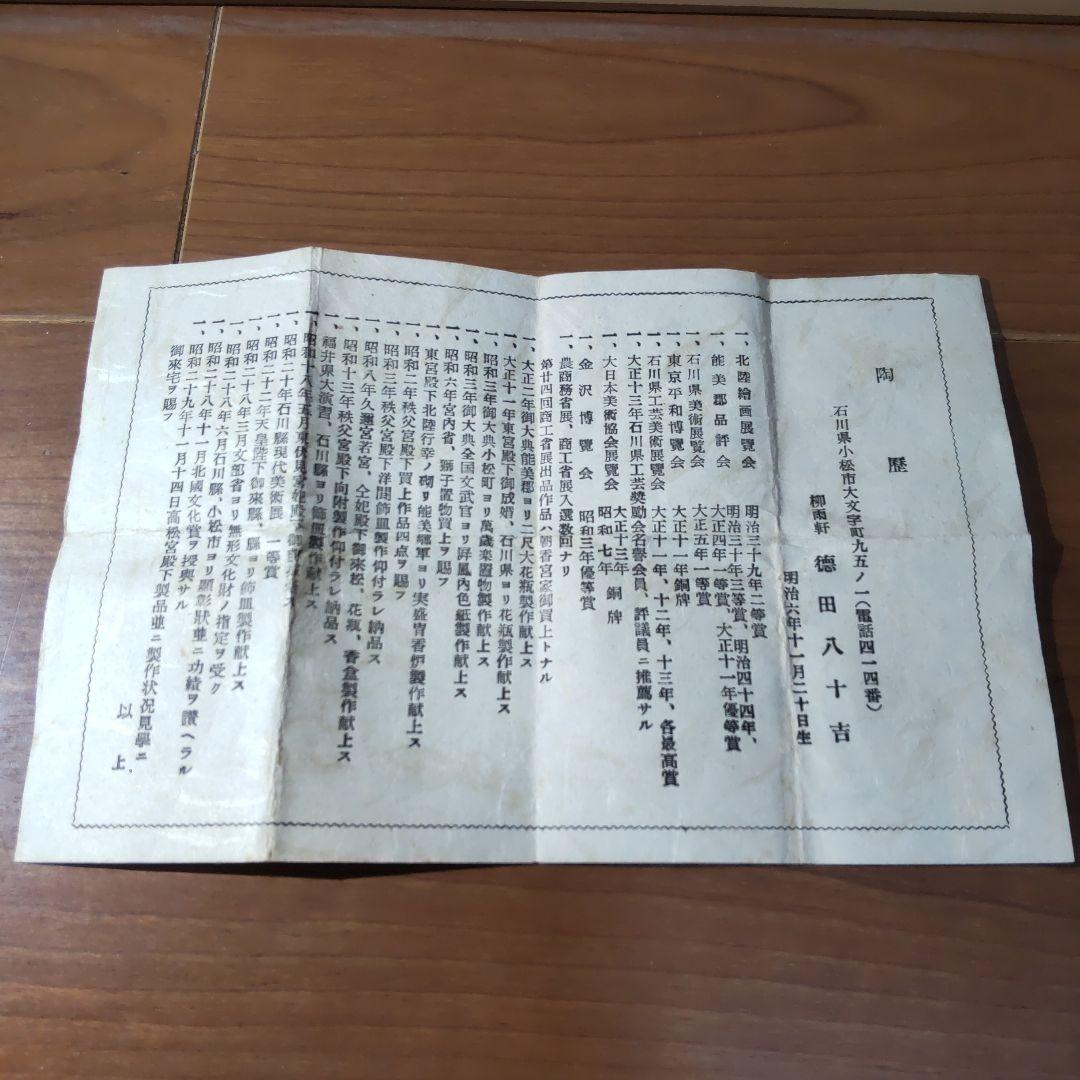 陶歴
石川県小松市大文字町九五ノ一(電話四一四番)
柳雨軒 德田八十吉
明治六年十一月二十日生
一、北陸繪画展覽会 明治三十九年二等賞
一、能美郡品評会 明治三十年三等賞、明治四十四年、
大正四年一等賞、大正十一年優等賞
一、石川県美術展覽会 大正五年一等賞
一、東京平和博覽会 大正十一年銅牌
一、石川県工芸美術展覽会 大正十一年、十二年、十三年、各最高賞
一、大正十三年石川県工芸奬励会名譽会員、評議員ニ推薦サル
一、大日本美術協会展覽会 大正十三年 昭和七年 銅牌
一、金沢博覽会 昭和三年優等賞
一、農商務省展、商工省展入選数回ナリ
第廿四回商工省展出品作品ハ朝香宮家御買上トナル
一、大正二年御大典能美郡ヨリ二尺大花瓶製作献上ス
一、大正十一年東宮殿下御成婚、石川県ヨリ花瓶製作献上ス
一、昭和三年御大典小松町ヨリ萬歳楽置物製作献上ス
一、昭和三年御大典全国文武官ヨリ屏風内色紙製作献上ス
一、昭和六年宮内省、獅子置物買上ヲ賜フ
一、東宮殿下北陸行幸ノ砌リ能美郷軍ヨリ実盛冑香炉製作献上ス
一、昭和二年秩父宮殿下買上作品四点ヲ賜フ
一、昭和三年秩父宮殿下洋間飾皿製作仰付ラレ納品ス
一、昭和八年久邇宮若宮、仝妃殿下御来松、花瓶、香盒製作献上ス
一、昭和十三年秩父宮殿下向附製作仰付ラレ納品ス
一、福井県大演習、石川縣ヨリ飾皿製作献上ス
一、昭和十八年五月東伏見宮妃殿
一、昭和二十年石川縣現代美術展、一等賞
一、昭和二十二年天皇陛下御來縣、縣ヨリ飾皿製作献上ス
一、昭和二十八年三月文部省ヨリ無形文化財ノ指定ヲ受ク
一、昭和二十八年六月石川縣、小松市ヨリ顕彰狀並ニ功績ヲ讃ヘラル
一、昭和二十八年十一月北國文化賞ヲ授與サル
一、昭和二十九年十一月十四日高松宮殿下製品並ニ製作状况見學ニ
御來宅ヲ賜フ
以上